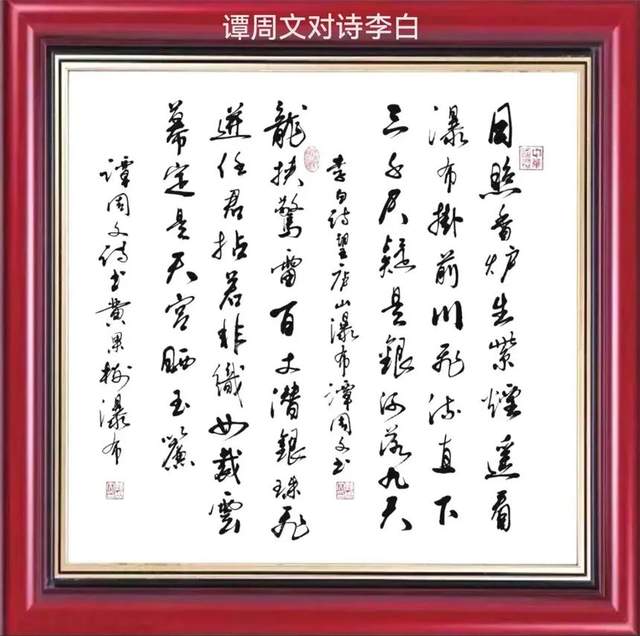 谭周文对诗李白
日照香炉生紫煙遥看
瀑布掛前川飛流直下
三千尺疑是銀河落九天
李白诗望庐山瀑布谭周文书
龍挾驚雷百丈潜銀珠飛
迸任君拈若非織女裁雲
幕定是天宫晒玉簾
谭周文诗书黄果树瀑布